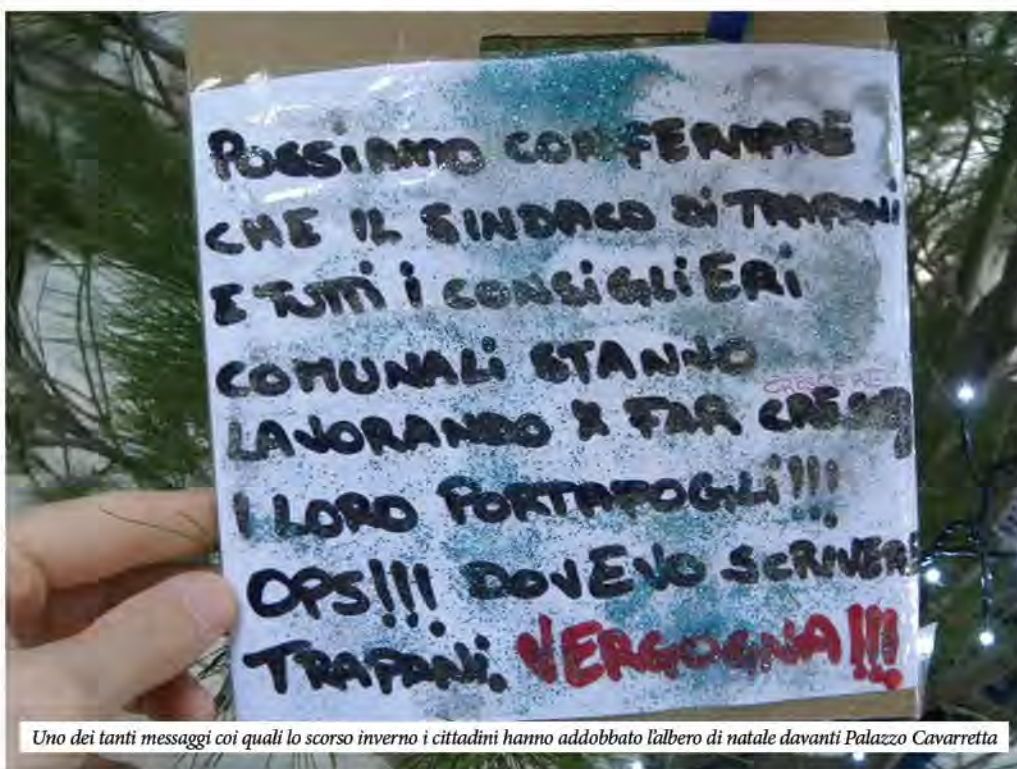 POSSIAMO CONFERMARE
CHE IL SINDACO DI TRAPANI
E TUTTI I CONSIGLIERI
COMUNALI STANNO
CRESCERE
LAVORANDO X FAR CRESCE
I LORO PORTAFOGLI!!!
OPS!!! DOVEVO SCRIVERE
TRAPANI. VERGOGNA!!!
Uno dei tanti messaggi coi quali lo scorso inverno i cittadini hanno addobbato l'albero di natale davanti Palazzo Cavarretta